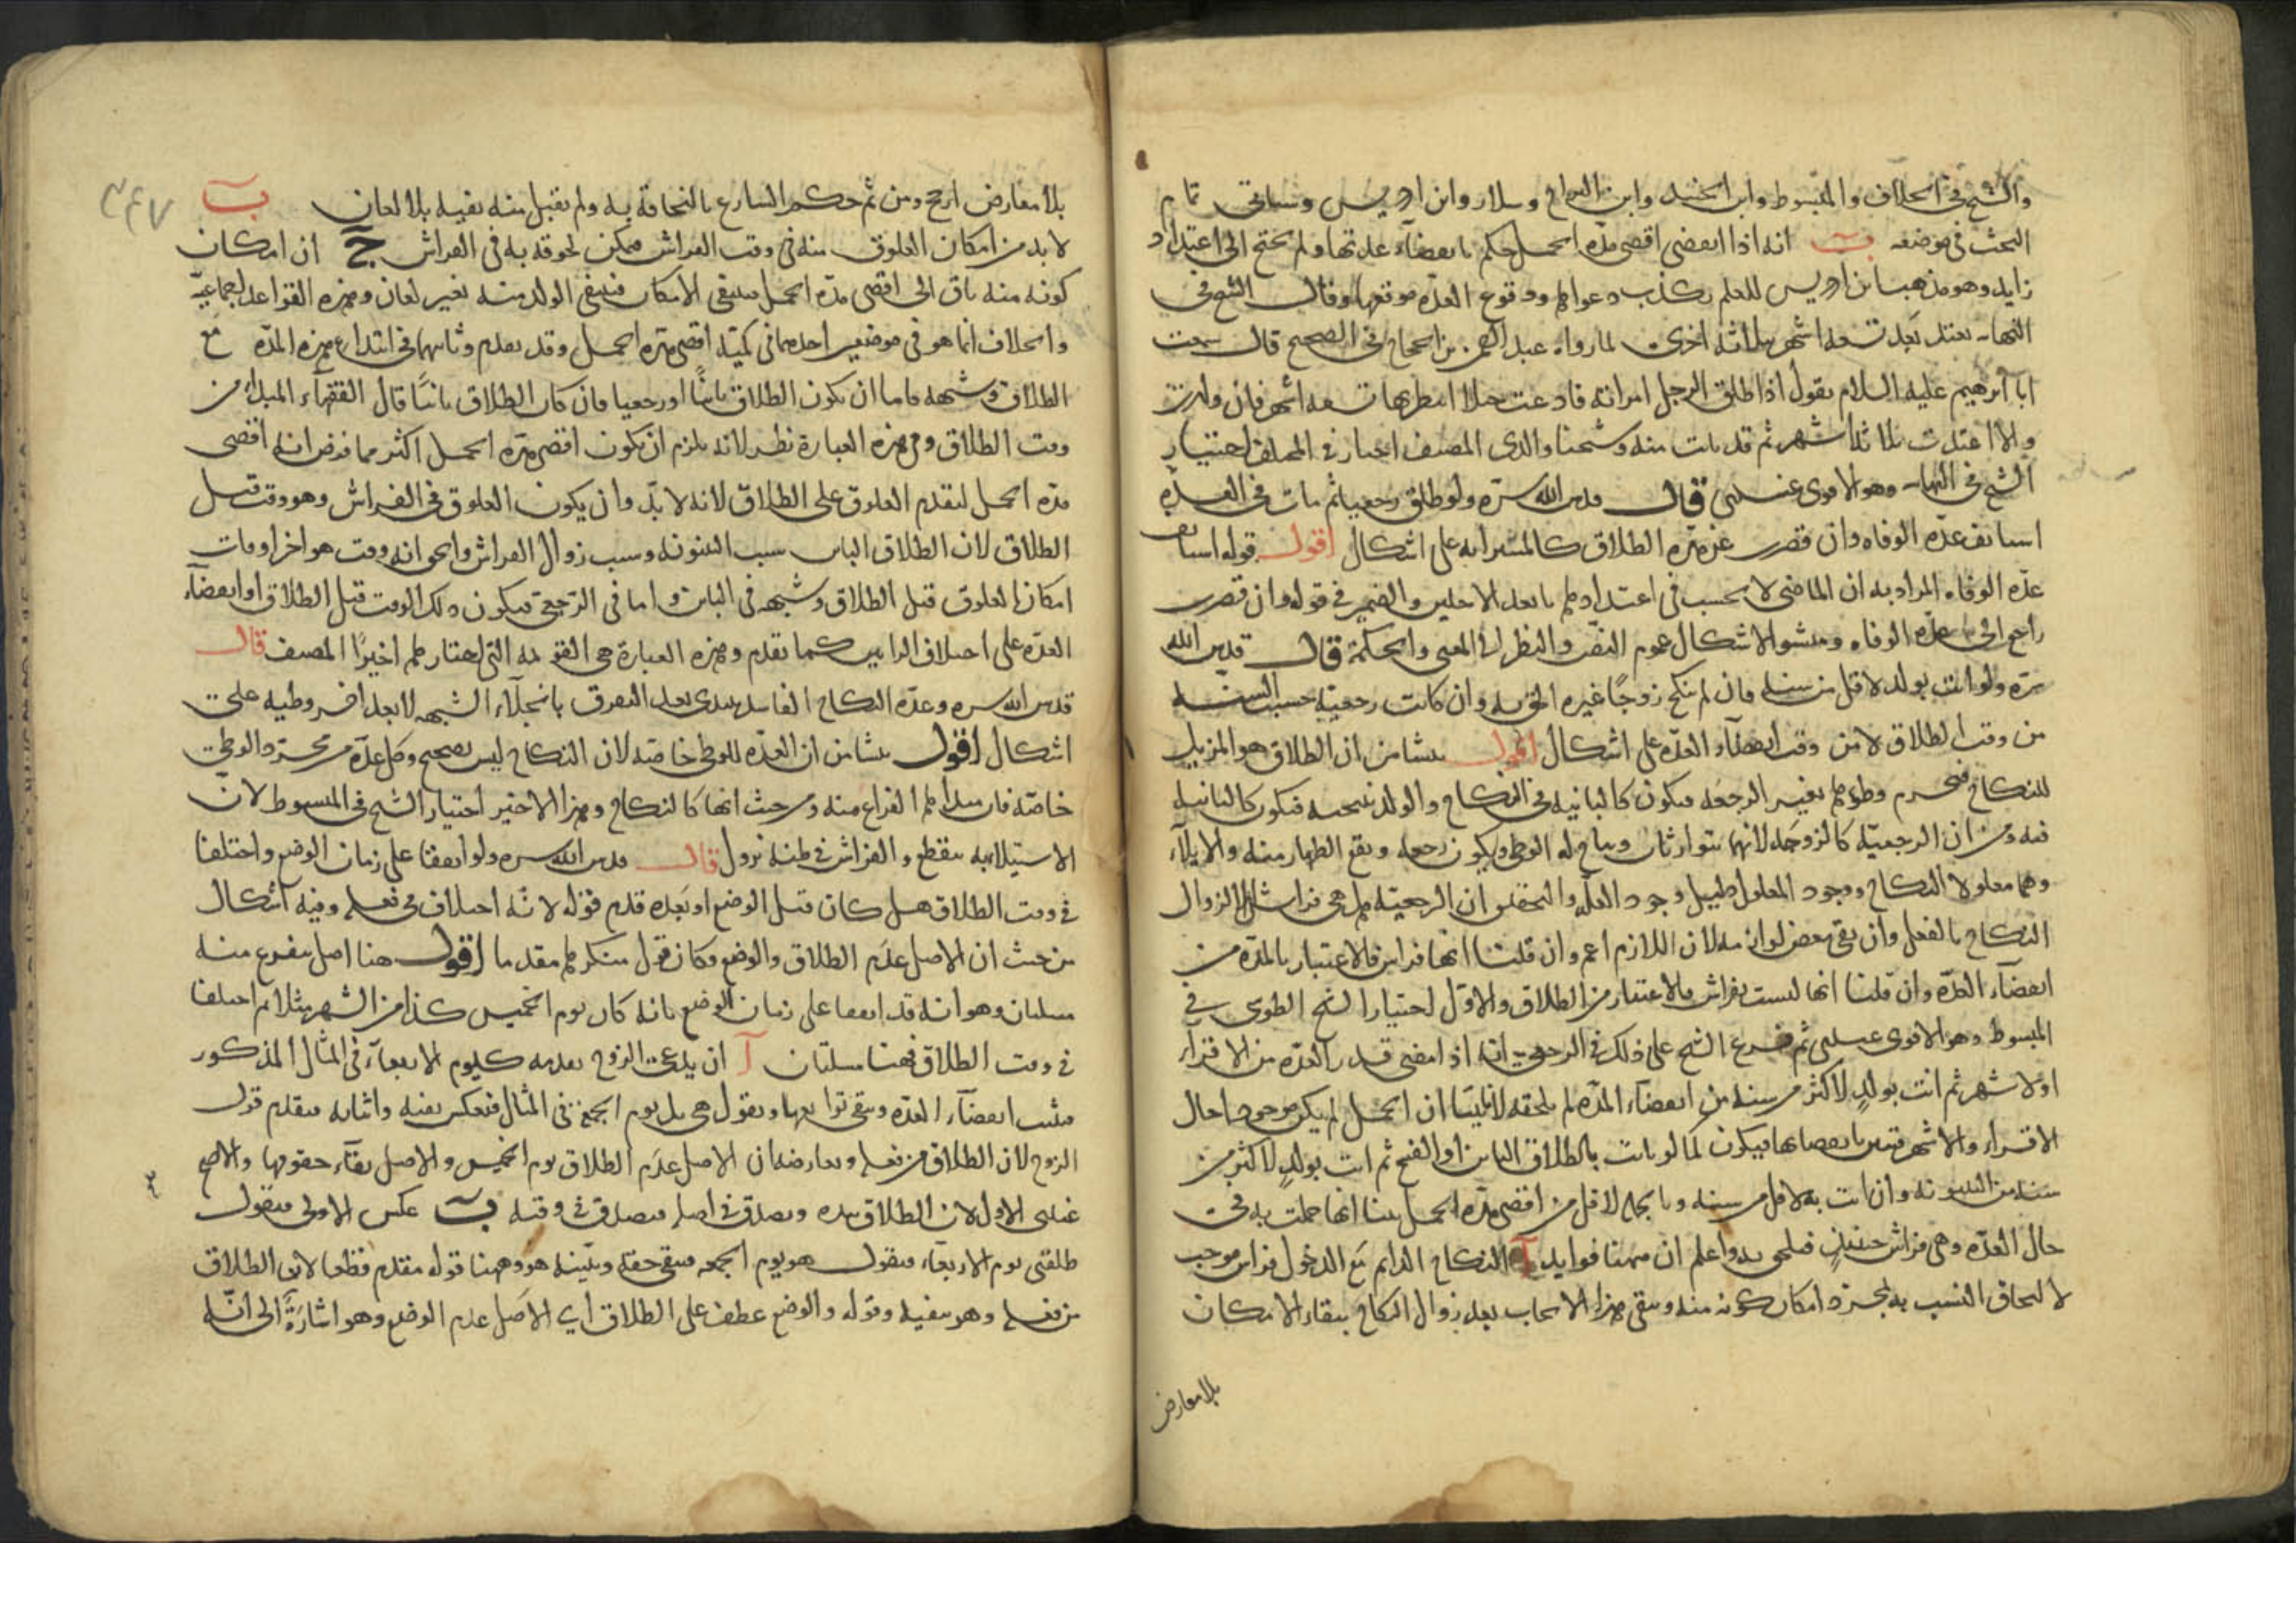 والشيخ في الخلاف والمبسوط وابن الجنيد وابن البراج وسلار وابن ادريس وسياتي تمام
البحث في موضعه ب انه اذا انقضى اقصى مدة الحمل حكم بانقضاء عدتها ولم تحتج الى اعتداد
زايد وهو مذهب ابن ادريس للعلم بكذب دعواها ووقوع العدة موقعها وقال الشيخ في
النهاية تعتد بعد تسعة اشهر بثلاثة اخرى لما رواه عبد الرحمن بن الحجاج في الصحيح قال سمعت
ابا ابرهيم عليه السلام يقول اذا طلق الرجل امراته فادعت حملا انتظر بها تسعة اشهر فان ولدت
والا اعتدت بثلاثة اشهر ثم قد بانت منه وشيخنا والدي المصنف اختار في المختلف اختيار
الشيخ في النهاية وهو الاقوى عندي قال قدس الله سره ولو طلق رجعيا ثم مات في العدة
استانفت عدة الوفاة وان قصرت عن مدة الطلاق كالمسترابة على اشكال اقول قوله استانفت
عدة الوفاة المراد به ان الماضي لا يحتسب في اعتدادها بابعد الاجلين والضمير في قوله وان قصرت
راجع الى عدة الوفاة ومنشؤ الاشكال عموم النص والنظر الى المعنى والحكمة قال قدس الله
سره ولو اتت بولد لاقل من سنة فان لم تنكح زوجا غيره الحق به وان كانت رجعية حسبت السنة
من وقت الطلاق لا من وقت انقضاء العدة على اشكال اقول ينشا من ان الطلاق هو المزيل
للنكاح فيحرم وطؤها بغير الرجعة فيكون كالباينة في النكاح والولد نتيجته فيكون كالباينة
فيه ومن ان الرجعية كالزوجة لانهما يتوارثان ويباح له الوطي ويكون رجعة ويقع الظهار منه والايلاء
وهما معلولا النكاح ووجود المعلول دليل وجود العلة والتحقيق ان الرجعية هل هي فراش ام لا لزوال
النكاح بالفعل وان بقي بعض لوازمه لان اللازم اعم وان قلنا انها فراش فالاعتبار بالمدة من
انقضاء العدة وان قلنا انها ليست بفراش فالاعتبار من الطلاق والاول اختيار الشيخ الطوسي في
المبسوط وهو الاقوى عندي ثم فرع الشيخ على ذلك في الرجعية انه اذا مضى قدر العدة من الاقراء
او الاشهر ثم اتت بولد لاكثر من سنة من انقضاء المدة لم يلحقه لانا تبينا ان الحمل لم يكن موجودا حال
الاقراء والاشهر فتبين بانقضائها فيكون كما لو بانت بالطلاق الباين او الفسخ ثم اتت بولد لاكثر من
سنة من البينونة وان اتت به لاقل من سنة وبالجملة لاقل من اقصى مدة الحمل تبينا انها حملت به في
حال العدة وهي فراش حينئذ فيلحق به واعلم ان ههنا فوايد آ النكاح الدايم مع الدخول فراش موجب
لالحاق النسب به لمجرد امكان كونه منه ويبقى هذا الايجاب بعد زوال النكاح ببقاء الامكان
بلا معارض
٣٤٧
بلا معارض ارجح ومن ثم حكم الشارع بالتحاقه به ولم يقبل منه نفيه بلا لعان ب
لا بد من امكان العلوق منه في وقت الفراش ممكن لحوقه به في الفراش ج ان امكان
كونه منه باق الى اقصى مدة الحمل فينتفي الامكان فينتفي الولد منه بغير لعان وهذه القواعد اجماعية
والخلاف انما هو في موضعين احدهما في كمية اقصى مدة الحمل وقد تقدم وثانيهما في ابتداء هذه المدة مع
الطلاق وشبهه فاما ان يكون الطلاق باينا او رجعيا فان كان الطلاق باينا قال الفقهاء المبدأ من
وقت الطلاق وفي هذه العبارة نظر لانه يلزم ان يكون اقصى مدة الحمل اكثر مما فرض انه اقصى
مدة الحمل لتقدم العلوق على الطلاق لانه لا بد وان يكون العلوق في الفراش وهو وقت قبل
الطلاق لان الطلاق الباين سبب البينونة وسبب زوال الفراش والحق انه وقت هو اخر اوقات
امكان العلوق قبل الطلاق وشبهه في الباين واما في الرجعي فيكون ذلك الوقت قبل الطلاق او انقضاء
العدة على اختلاف الرايين كما تقدم وهذه العبارة هي القويمة التي اختارها اخيرا المصنف قال
قدس الله سره وعدة النكاح الفاسد تبتدي بعد التفرق بانجلاء الشبهة لا بعد اخر وطيه على
اشكال اقول ينشا من ان العدة للوطي خاصة لان النكاح ليس بصحيح وكل عدة من مجرد الوطي
خاصة فابتداها الفراغ منه ومن حيث انها كالنكاح وهذا الاخير اختيار الشيخ في المبسوط لان
الاستيلاء به ينقطع والفراش في ظنه يزول قال قدس الله سره ولو اتفقا على زمان الوضع واختلفا
في وقت الطلاق هل كان قبل الوضع او بعده قدم قوله لانه اختلاف في فعله وفيه اشكال
من حيث ان الاصل عدم الطلاق والوضع وكان قول منكرهما مقدما اقول هنا اصل يتفرع منه
مسئلتان وهو انه قد اتفقا على زمان الوضع بانه كان يوم الخميس كذا من الشهر مثلا ثم اختلفا
في وقت الطلاق فهنا مسئلتان آ ان يدعي الزوج تقدمه كيوم الاربعاء في المثال المذكور
فيثبت انقضاء العدة وينفي توابعها وتقول هي بل يوم الجمعة في المثال فتعكس نفيه واثباته فيقدم قول
الزوج لان الطلاق من فعله ويعارضه ان الاصل عدم الطلاق يوم الخميس والاصل بقاء حقوقها والاصح
عندي الاول لان الطلاق بيده ويصدق في اصله فيصدق في وقته ب عكس الاولى فتقول
طلقني يوم الاربعاء فيقول هو يوم الجمعة فتنفي حقه ويثبته هو وههنا قوله مقدم قطعا لان الطلاق
من فعله وهو ينفيه وقوله والوضع عطف على الطلاق اي الاصل عدم الوضع وهو اشارة الى انه